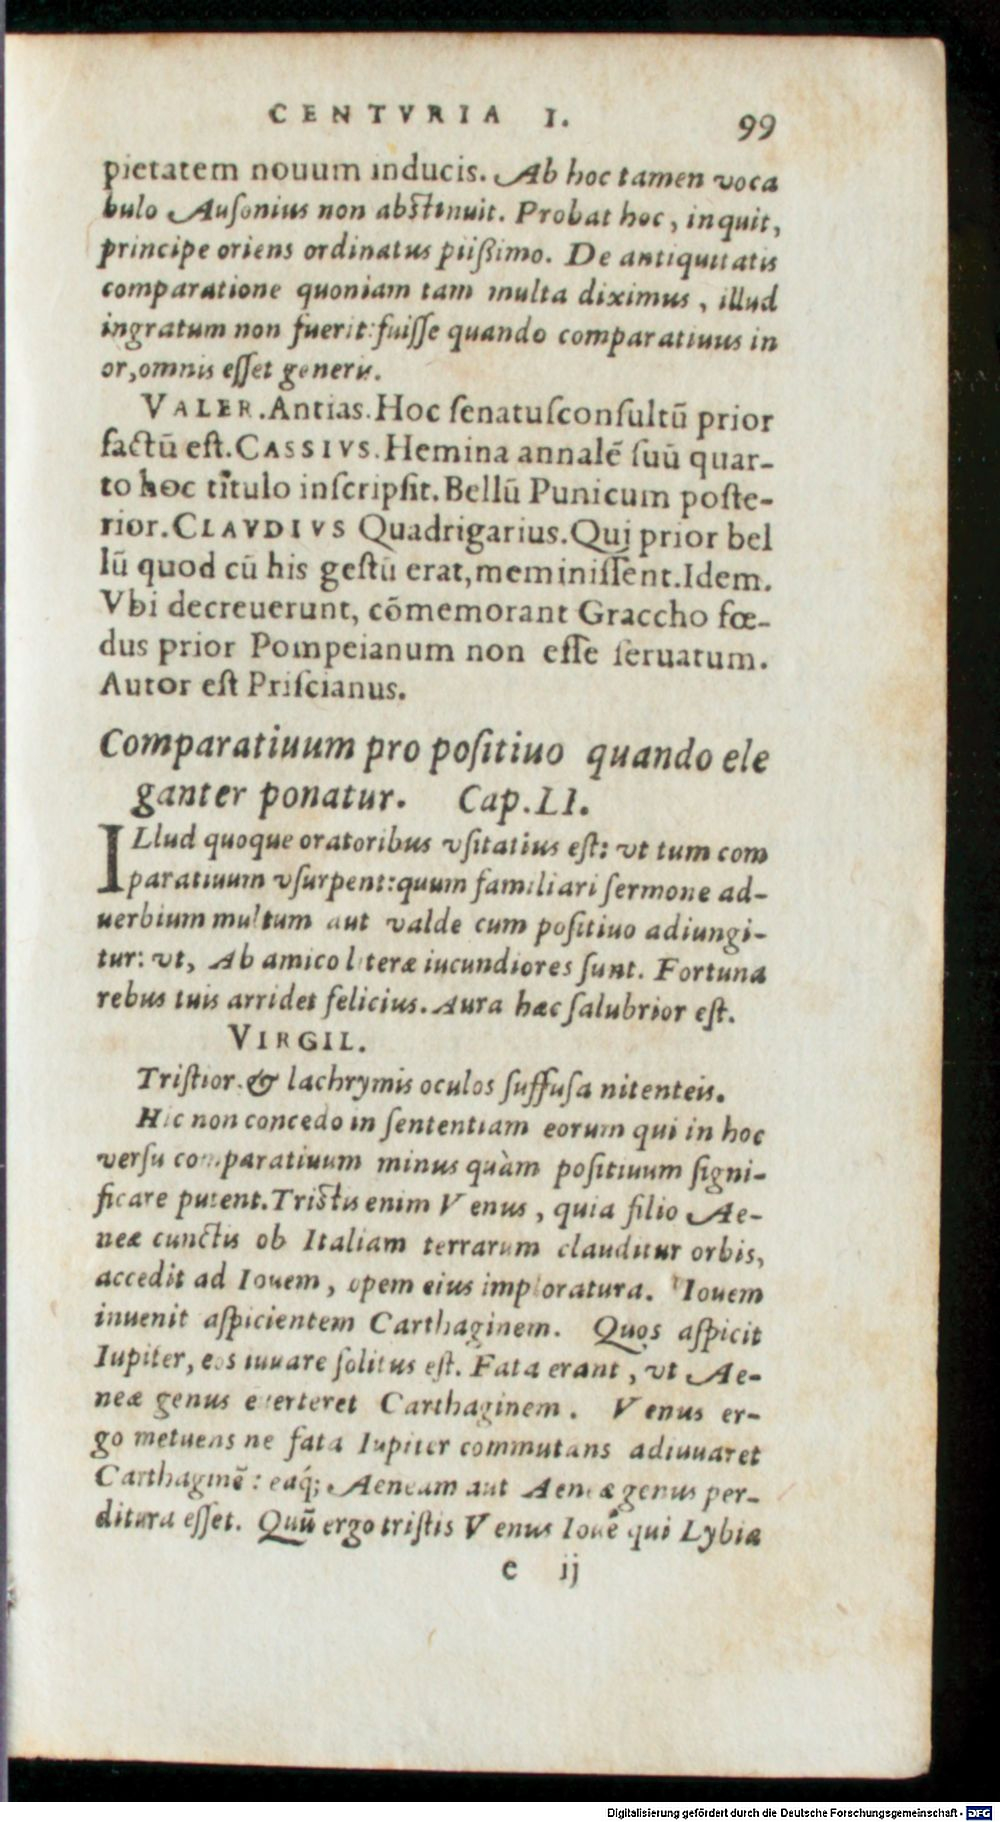 CENTVRIA I. 99
pietatem nouum inducis. Ab hoc tamen voca
bulo Ausonius non abstinuit. Probat hoc, inquit,
principe oriens ordinatus piißimo. De antiquitatis
comparatione quoniam tam multa diximus, illud
ingratum non fuerit: fuisse quando comparatiuus in
or, omnis esset generis.
VALER. Antias. Hoc senatusconsultū prior
factū est. CASSIVS. Hemina annalē suū quar-
to hoc titulo inscripsit. Bellū Punicum poste-
rior. CLAVDIVS Quadrigarius. Qui prior bel
lū quod cū his gestū erat, meminissent. Idem.
Vbi decreuerunt, cōmemorant Graccho fœ-
dus prior Pompeianum non esse seruatum.
Autor est Priscianus.
Comparatiuum pro positiuo quando ele
ganter ponatur. Cap. LI.
ILlud quoque oratoribus vsitatius est: vt tum com
paratiuum vsurpent: quum familiari sermone ad-
uerbium multum aut valde cum positiuo adiungi-
tur: vt, Ab amico literæ iucundiores sunt. Fortuna
rebus tuis arridet felicius. Aura hæc salubrior est.
VIRGIL.
Tristior. & lachrymis oculos suffusa nitenteis.
Hic non concedo in sententiam eorum qui in hoc
versu comparatiuum minus quàm positiuum signi-
ficare putent. Tristis enim Venus, quia filio Ae-
neæ cunctis ob Italiam terrarum clauditur orbis,
accedit ad Iouem, opem eius imploratura. Iouem
inuenit aspicientem Carthaginem. Quos aspicit
Iupiter, eos iuuare solitus est. Fata erant, vt Ae-
neæ genus euerteret Carthaginem. Venus er-
go metuens ne fata Iupiter commutans adiuuaret
Carthaginē: eaq́; Aeneam aut Aeneæ genus per-
ditura esset. Quū ergo tristis Venus Iouē qui Lybiæ
e ij
Digitalisierung gefördert durch die Deutsche Forschungsgemeinschaft - DFG